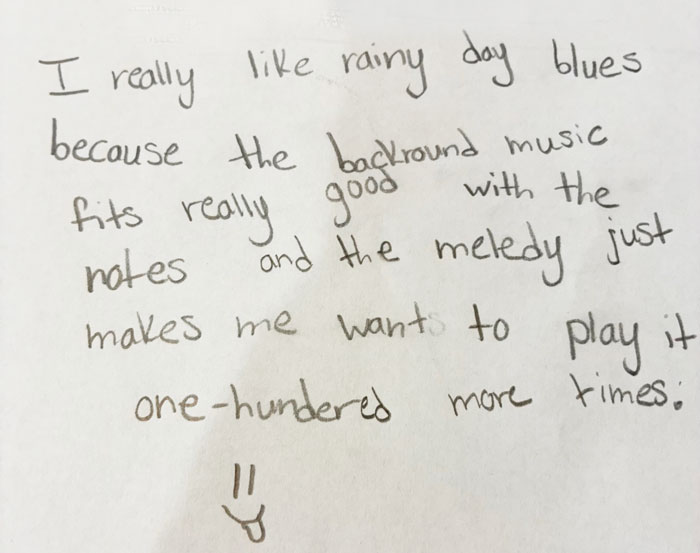 I really like rainy day blues
because the backround music
fits really good with the
notes and the meledy just
makes me want to play it
one-hundered more times.